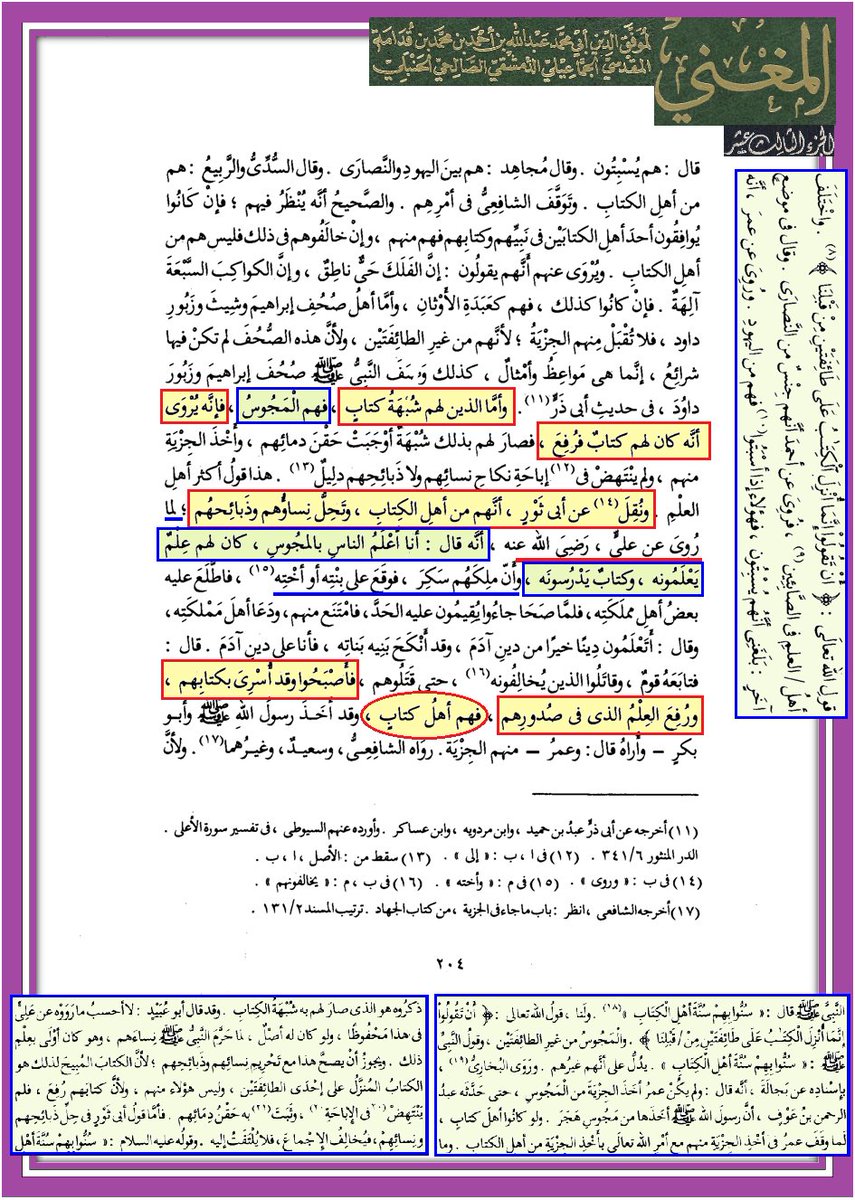 المغني
لموفق الدين أبي محمد عبد الله بن أحمد بن محمد بن قدامة
المقدسي الجماعيلي الدمشقي الصالحي الحنبلي
الجزء الثالث عشر
قول الله تعالى : ﴿ أَنْ تَقُولُوا إِنَّمَا أُنْزِلَ الْكِتَابُ عَلَى طَائِفَتَيْنِ مِنْ قَبْلِنَا ﴾ (٨) . واخْتَلَفَ
أهلُ / العلمِ فى الصَّابِئِين (٩) ، فرُوِىَ عن أحمدَ أنَّهم جِنْسٌ من النَّصارَى . وقال فى موضعٍ
آخَرَ : بَلَغَنِى أنَّهم يُسْبِتُون ، فهؤلاء إذا أسْبَتُوا (١٠) فهم من اليهودِ . ورُوِىَ عن عمرَ ، أنَّه
قال : هم يُسْبِتُون . وقال مُجاهِد : هم بينَ اليهودِ والنَّصارَى . وقال السُّدِّىُّ والرَّبِيعُ : هم
من أهلِ الكتابِ . وتَوَقَّفَ الشافِعِىُّ فى أمْرِهِم . والصَّحيحُ أنَّه يُنْظَرُ فيهم ؛ فإنْ كانُوا
يُوافِقُون أحدَ أهلِ الكتابَيْن فى نَبِيِّهم وكتابِهم فهم منهم ، وإنْ خالَفُوهم فى ذلك فليس هم من
أهلِ الكتابِ . ويُرْوَى عنهم أنَّهم يقولُون : إنَّ الفَلَكَ حَىٌّ ناطِقٌ ، وإنَّ الكواكِبَ السَّبْعَةَ
آلِهَةٌ . فإنْ كانُوا كذلك ، فهم كعَبَدَةِ الأوْثانِ . وأمَّا أهلُ صُحُفِ إبراهيمَ وشِيثَ وزَبُورِ
داود ، فلا تُقْبَلُ منهم الجِزْيَةُ ؛ لأنَّهم من غيرِ الطائِفَتَيْن ، ولأنَّ هذه الصُّحُفَ لم تكنْ فيها
شرائِعُ ، إنَّما هى مَواعِظُ وأمْثالٌ ، كذلك وَصَفَ النَّبىُّ ﷺ صُحُفَ إبراهيمَ وزَبُورَ
داوُدَ ، فى حديثِ أبى ذَرٍّ (١١) . وأمَّا الذين لهم شُبْهَةُ كتابٍ ، فهم الْمَجُوسُ ، فإنَّه يُرْوَى
أنَّه كان لهم كتابٌ فرُفِعَ ، فصار لهم بذلك شُبْهَةٌ أوْجَبَتْ حَقْنَ دمائِهم ، وأَخْذَ الجِزْيَةِ
منهم ، ولم يَنْتَهِضْ فى (١٢) إباحَةِ نكاحِ نسائِهم ولا ذَبائِحِهم دليلٌ (١٣) . هذا قولُ أكثرِ أهلِ
العلمِ . ونُقِلَ (١٤) عن أبى ثَوْرٍ ، أنَّهم من أهلِ الكتابِ ، وتَحِلُّ نِساؤُهم وذَبائِحُهُم ؛ لِما
رُوِىَ عن علىٍّ ، رَضِىَ الله عنه ، أنَّه قال : أنا أعْلَمُ الناسِ بالمجُوسِ ، كان لهم عِلْمٌ
يَعْلَمُونه ، وكتابٌ يَدْرُسونَه ، وأنَّ مَلِكَهُم سَكِرَ ، فوقَعَ على بِنْتِه أو أُخْتِه (١٥) ، فاطَّلَعَ عليه
بعضُ أهلِ مملكَتِه ، فلمَّا صَحَا جاءُوا يُقِيمُون عليه الحَدَّ ، فامْتَنَعَ منهم ، ودَعَا أهلَ مَمْلكَتِه ،
وقال : أتَعْلَمُون دِينًا خيرًا من دينِ آدَمَ ، وقد أنْكَحَ بَنِيه بَناتِه ، فأنا على دينِ آدَمَ . قال :
فتابَعَهُ قومٌ ، وقاتَلُوا الذين يُخالِفُونه (١٦) ، حتى قَتَلُوهم ، فأصْبَحُوا وقد أُسْرِىَ بكتابِهم ،
ورُفِعَ العِلْمُ الذى فى صُدورِهم ، فهم أهلُ كتابٍ ، وقد أخَذَ رسولُ اللهِ ﷺ وأبو
بكرٍ – وأُراهُ قال : وعمرُ – منهم الجِزْيَةَ . رواه الشافِعِىُّ ، وسعيدٌ ، وغيرُهما (١٧) . ولأنَّ
(١١) أخرجه عن أبى ذر عبدُ بن حميد ، وابن مردويه ، وابن عساكر . وأورده عنهم السيوطى ، فى تفسير سورة الأعلى .
الدر المنثور ٦/ ٣٤١ . (١٢) فى ا ، ب : « إلى » . (١٣) سقط من : الأصل ، ا ، ب .
(١٤) فى ب : « وروى » . (١٥) فى م : « وأخته » . (١٦) فى ب ، م : « يخالفونهم » .
(١٧) أخرجه الشافعى ، انظر : باب ما جاء فى الجزية ، من كتاب الجهاد . ترتيب المسند ٢/ ١٣١ .
٢٠٤
النَّبىَّ ﷺ قال : « سُنُّوا بِهِمْ سُنَّةَ أهْلِ الْكِتَابِ » (١٨) . ولَنا ، قولُ الله تعالى : ﴿ أَنْ تَقُولُوا
إِنَّمَا أُنْزِلَ الْكِتَٰبُ عَلَى طَائِفَتَيْنِ مِنْ / قَبْلِنَا ﴾ . والْمَجُوسُ من غيرِ الطائِفَتَيْن ، وقولُ النَّبىِّ
ﷺ : « سُنُّوا بِهِمْ سُنَّةَ أَهْلِ الْكِتَابِ » . يدُلُّ على أنَّهم غيرُهم . ورَوَى البُخارِىُّ (١٩) ،
بإسْنادِه عن بَجَالَةَ ، أنَّه قال : ولم يكُنْ عمرُ أخَذَ الجِزْيَةَ من الْمَجُوسِ ، حتى حَدَّثَه عبدُ
الرحمنِ بن عَوْفٍ ، أنَّ رسولَ الله ﷺ أخَذَها من مَجُوسِ هَجَرَ . ولو كانُوا أهلَ كتابٍ ،
لما وقَفَ عمرُ فى أخْذِ الجِزْيَةِ منهم مع أمْرِ الله تعالَى بأخْذِ الجِزْيَةِ من أهلِ الكتابِ . وما
ذكَرُوه هو الذى صارَ لهم به شُبْهَةُ الكتابِ . وقد قال أبو عُبَيْدٍ : لا أحسبُ ما رَوَوْه عن علىٍّ
فى هذا مَحْفُوظًا ، ولو كان له أصْلٌ ، لما حَرَّمَ النَّبىُّ ﷺ نِساءَهم ، وهو كان أوْلَى بعِلْمِ
ذلك . ويجوزُ أنْ يصحَّ هذا مع تَحْرِيمِ نِسائِهم وذبائِحِهم ؛ لأنَّ الكتابَ المُبِيحَ لذلك هو
الكتابُ المُنَزَّلُ على إحْدَى الطائِفَتَيْن ، وليس هؤلاء منهم ، ولأنَّ كتابَهم رُفِعَ ، فلم
يَنْتَهِضْ فى الإباحَةِ ، وثَبَتَ (٢١) به حَقْنُ دِمائِهم . فأمَّا قولُ أبى ثَوْرٍ فى حِلِّ ذبائِحِهم
ونِسائِهِمْ ، فيُخالِفُ الإجْماعَ ، فلا يُلْتَفَتُ إليه . وقولُه عليه السلام : « سُنُّوا بِهِمْ سُنَّةَ أهْلِ